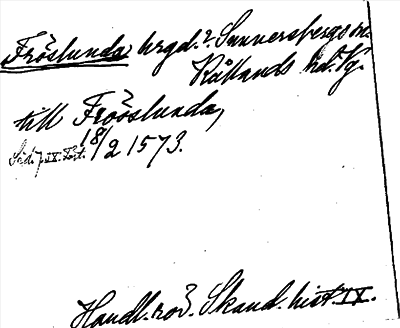 Fröslunda hrgd.? Sunnersbergs sn.
Kållands hd. Vg.
till Fröóslunda,
18/2 1573.
Handl. rör. Skand. hist. IX.